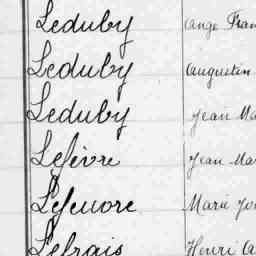 Leduby Ange Fran
Leduby Augustin
Leduby Jean Ma
Lefèvre Jean Mar
Lefeuvre Marie Jo
Lefrais Henri